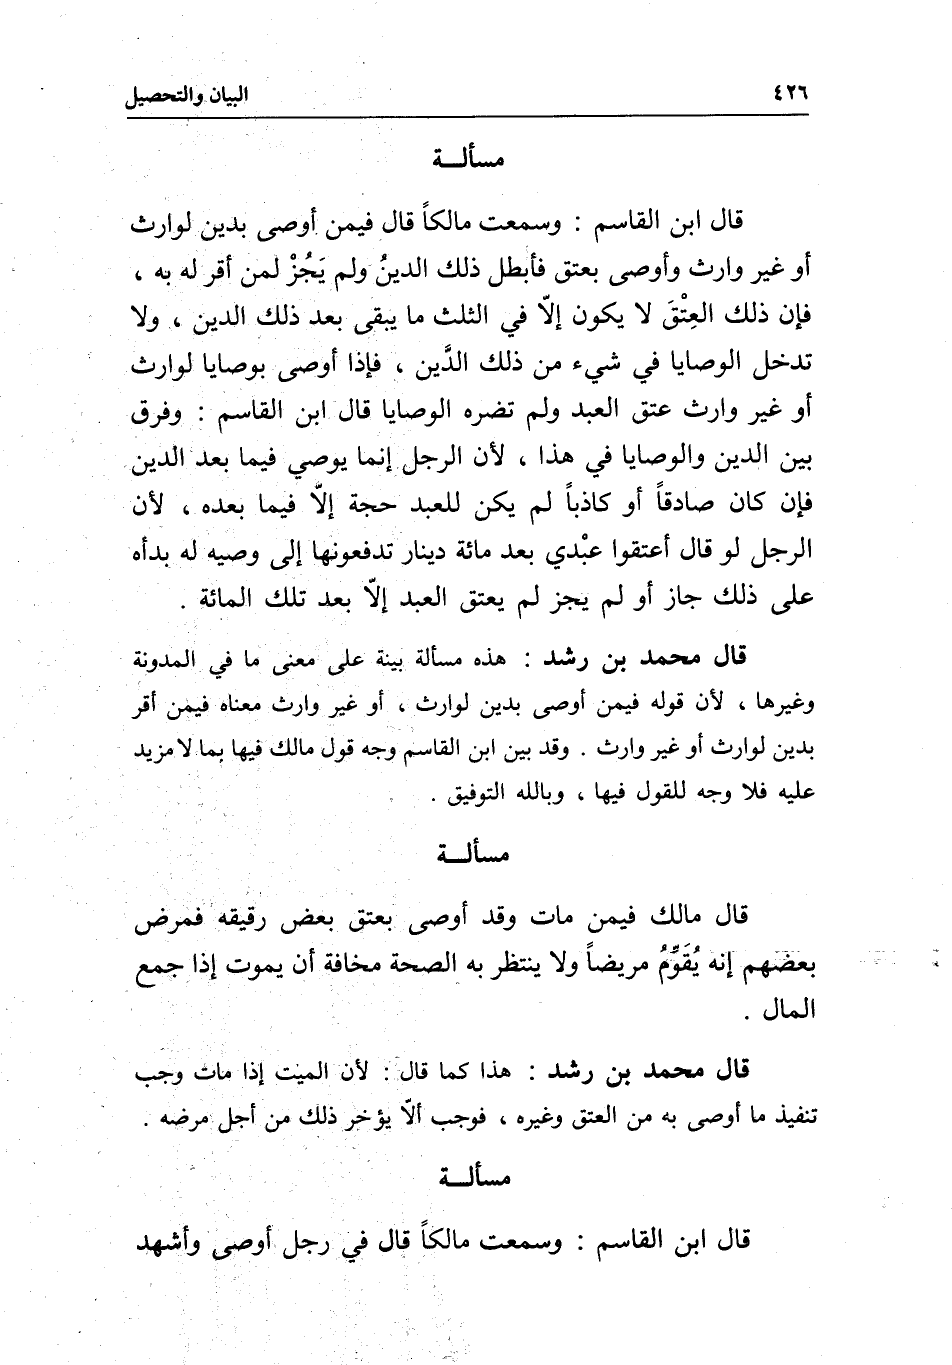 ٤٢٦ البيان والتحصيل
مسألة
قال ابن القاسم : وسمعت مالكاً قال فيمن أوصى بدين لوارث
أو غير وارث وأوصى بعتق فأبطل ذلك الدينُ ولم يَجُزْ لمن أقر له به ،
فإن ذلك العِتْقَ لا يكون إلّا في الثلث ما يبقى بعد ذلك الدين ، ولا
تدخل الوصايا في شيء من ذلك الدَّين ، فإذا أوصى بوصايا لوارث
أو غير وارث عتق العبد ولم تضره الوصايا قال ابن القاسم : وفرق
بين الدين والوصايا في هذا ، لأن الرجل إنما يوصي فيما بعد الدين
فإن كان صادقاً أو كاذباً لم يكن للعبد حجة إلّا فيما بعده ، لأن
الرجل لو قال أعتقوا عبْدي بعد مائة دينار تدفعونها إلى وصيه له بدأه
على ذلك جاز أو لم يجز لم يعتق العبد إلّا بعد تلك المائة .
قال محمد بن رشد : هذه مسألة بينة على معنى ما في المدونة
وغيرها ، لأن قوله فيمن أوصى بدين لوارث ، أو غير وارث معناه فيمن أقر
بدين لوارث أو غير وارث . وقد بين ابن القاسم وجه قول مالك فيها بما لا مزيد
عليه فلا وجه للقول فيها ، وبالله التوفيق .
مسألة
قال مالك فيمن مات وقد أوصى بعتق بعض رقيقه فمرض
بعضهم إنه يُقَوِّمُ مريضاً ولا ينتظر به الصحة مخافة أن يموت إذا جمع
المال .
قال محمد بن رشد : هذا كما قال : لأن الميت إذا مات وجب
تنفيذ ما أوصى به من العتق وغيره ، فوجب ألّا يؤخر ذلك من أجل مرضه .
مسألة
قال ابن القاسم : وسمعت مالكاً قال في رجل أوصى وأشهد